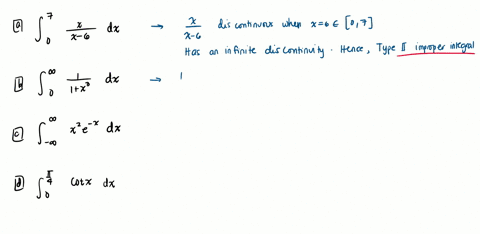 a ∫₀⁷ x/(x-6) dx → x/(x-6) discontinuous when x=6 ∈ [0,7]
Has an infinite discontinuity. Hence, Type II improper integral
b ∫₀^∞ 1/(1+x³) dx → 1
c ∫_{-∞}^∞ x²e^{-x} dx
d ∫₀^{π/4} cot x dx